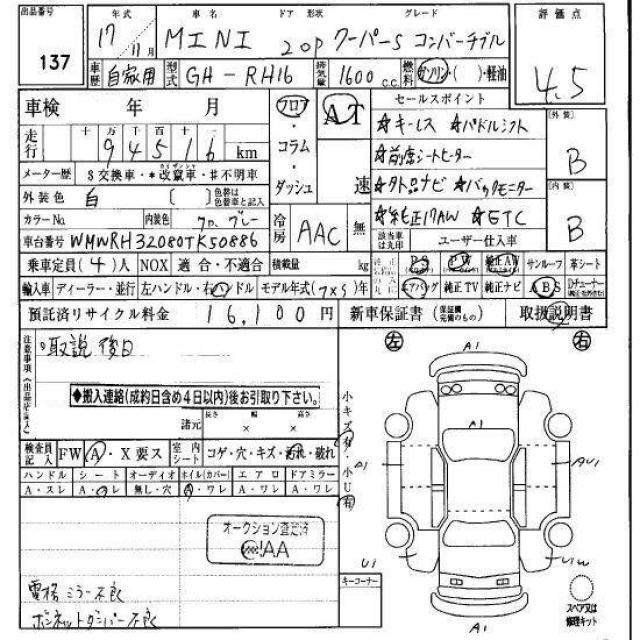 出品番号 137
年式 車名 ドア 形状 グレード 評価点
17 11月 MINI 2 OP クーパーS コンバーチブル 4.5
車歴 自家用 型式 GH-RH16 排気量 1600 c.c. 燃料 ガソリン・( )・軽油
車検 年 月 フロア・コラム・ダッシュ AT 速 セールスポイント
走行 十 万 千 百 十 一 9 4 5 1 6 km
☆キーレス ☆パドルシフト
☆前席シートヒーター
☆タト品ナビ ☆バックモニター
☆純正17AW ☆ETC
[外装] B
[内装] B
メーター歴 $交換車・*改竄車・#不明車
外装色 白 [ ] 色替は色替車と記入
カラーNo. 内装色 グレー 冷房 AAC 無
該当車は丸印 ユーザー仕入車
車台番号 WMWRH32080TK50886
乗車定員(4)人 NOX 適合・不適合 積載量 kg PS PW 純正AW サンルーフ 革シート
輸入車 ディーラー・並行 左ハンドル・右ハンドル モデル年式( ) エアバック 純正TV 純正ナビ ABS Dチューナー
預託済リサイクル料金 16,100円 新車保証書(保証継完備のもの) 取扱説明書
注意事項(出品店記入)
取説 後日
◆搬入連絡(成約日含め4日以内)後お引取り下さい。
諸元 長さ 幅 高さ
検査員記入 FW A・X要ス 室内シート コゲ・穴・キズ・汚れ・破れ
ハンドル シート オーディオ ホイル(カバー) エアロ ドアミラー
A・スレ A・コレ 無し・穴 A・ワレ A・ワレ A・ワレ
オークション査定済
JAA
電格ミラー不良
ボンネットダンパー不良
小キズ有・小U有
キーコーナー
左 右
A1
A1
AU1
U1
A1
スペア又は修理キット